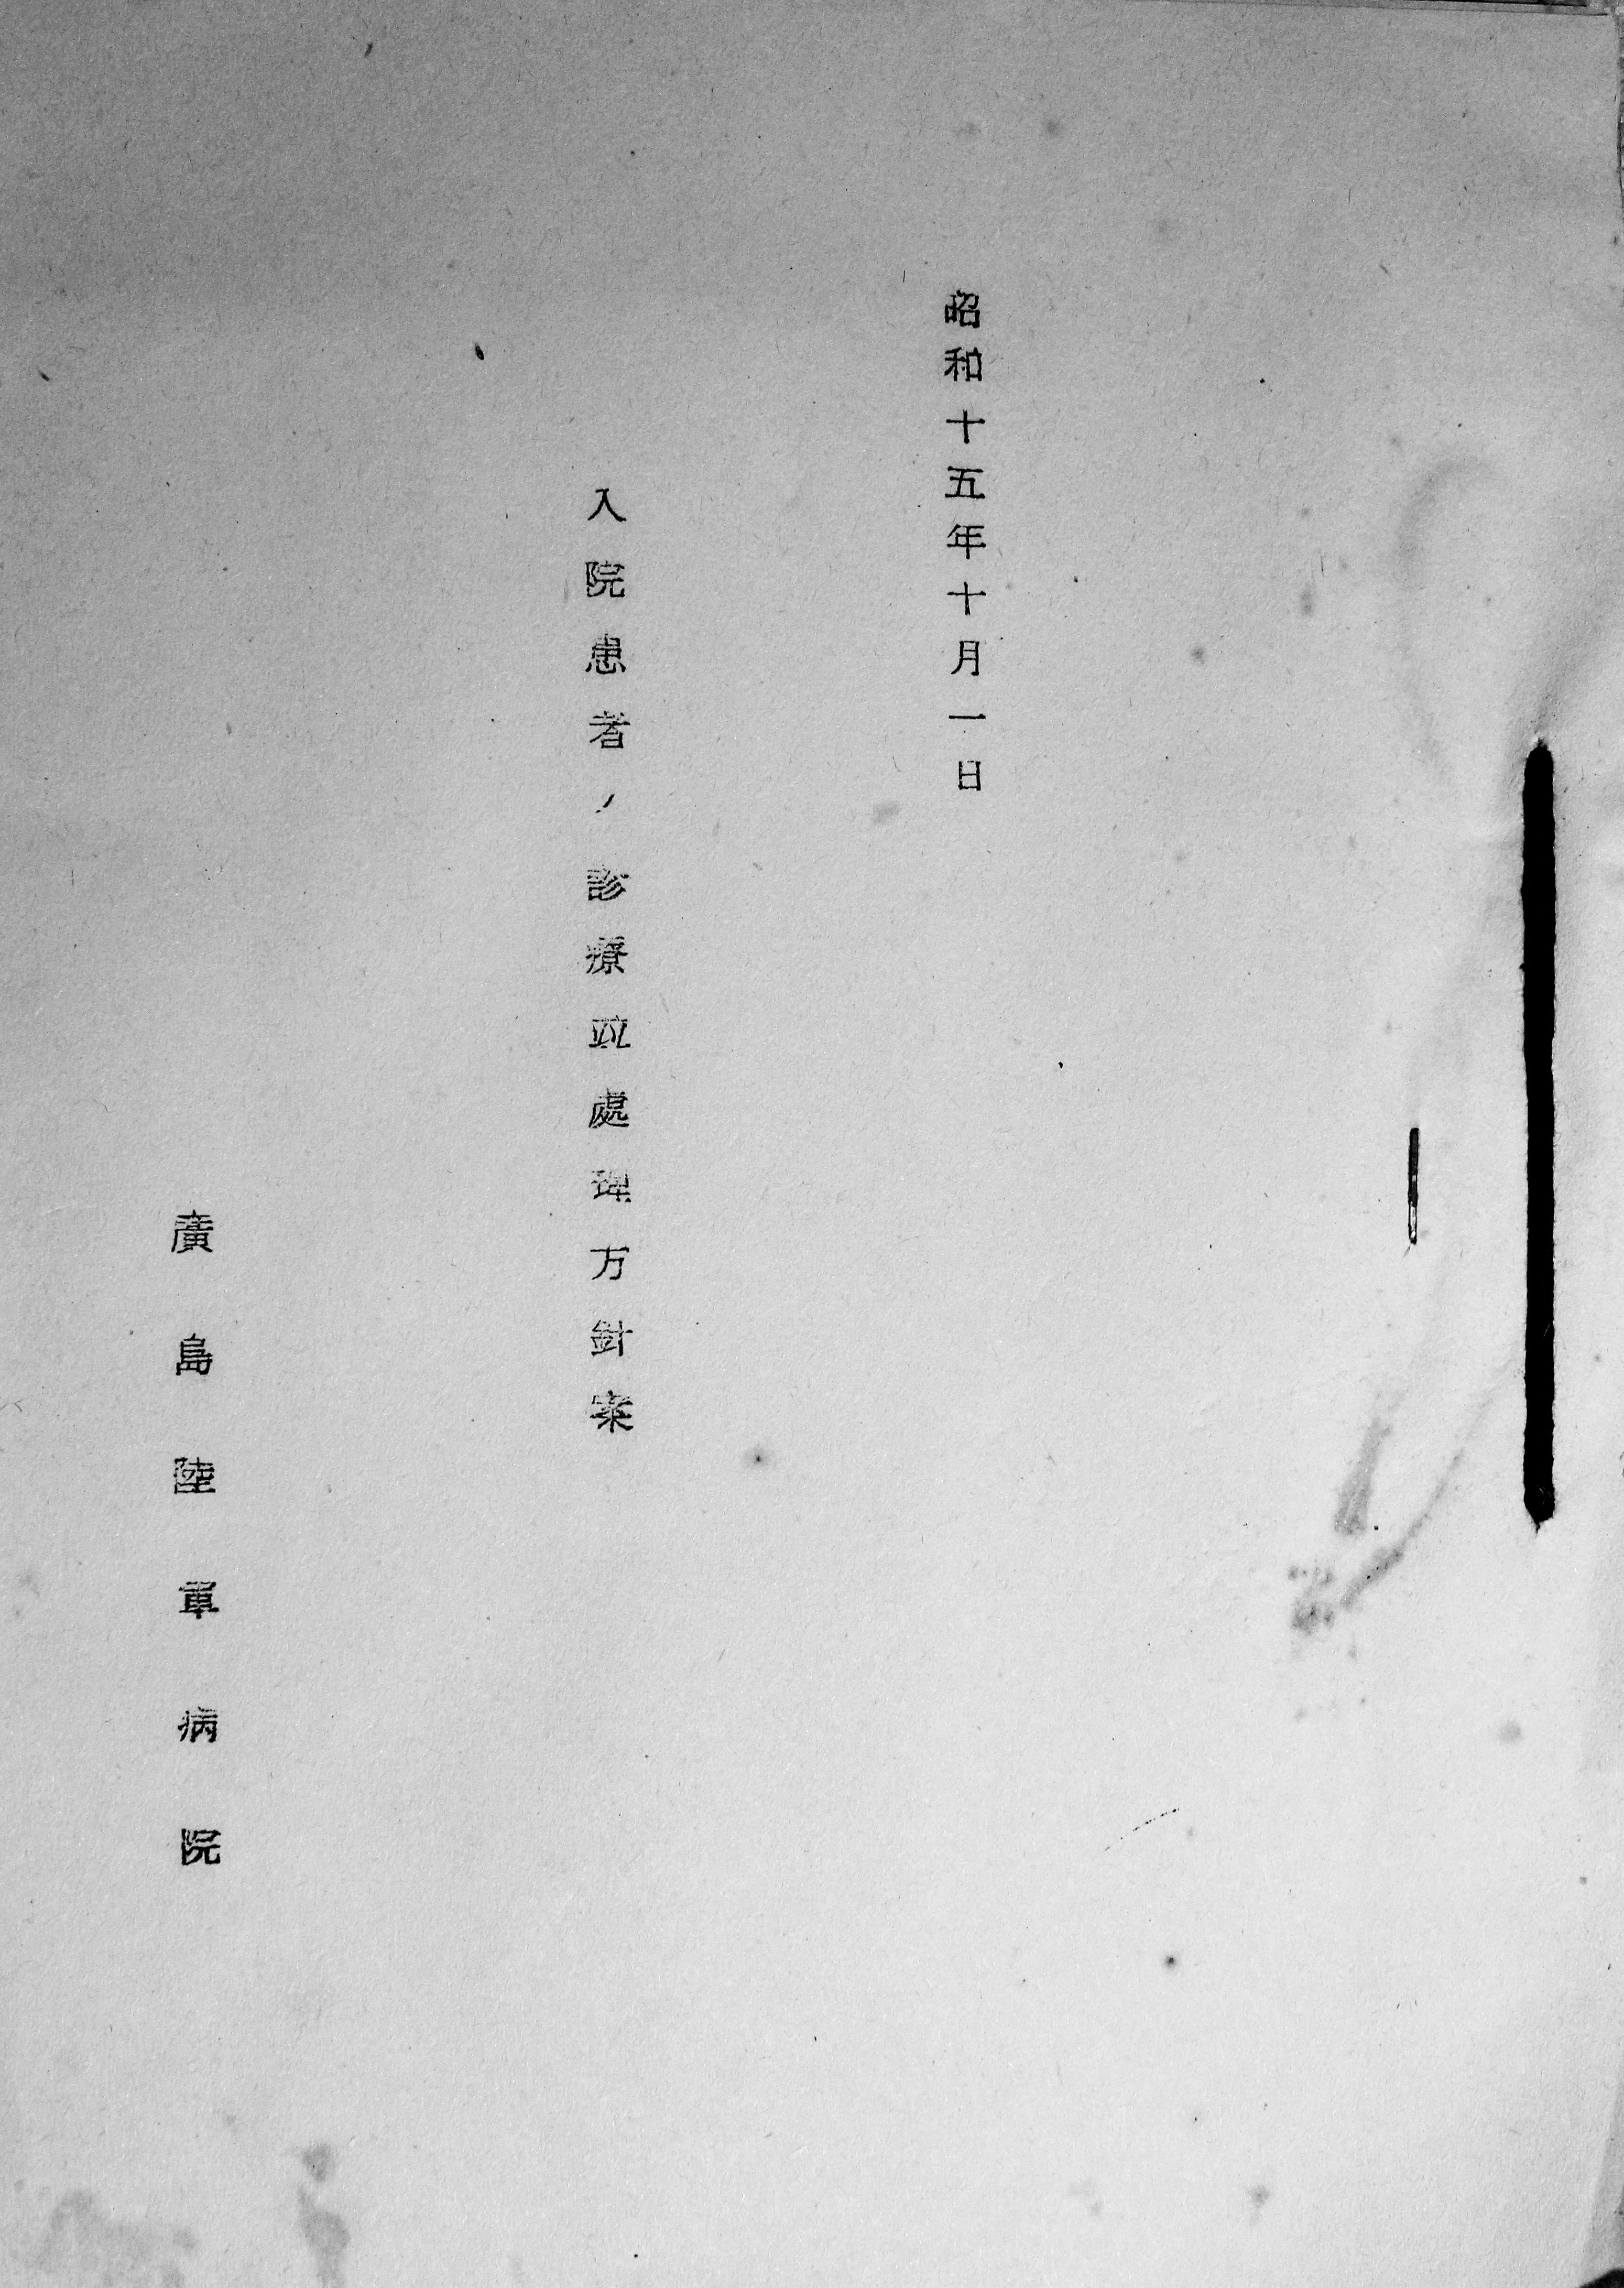 昭和十五年十月一日
入院患者ノ診療竝處理方針案
廣島陸軍病院